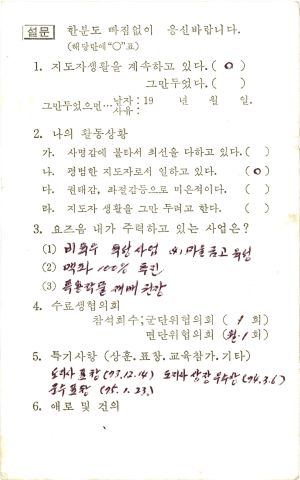 설문 한분도 빠짐없이 응신바랍니다.
(해당란에 "○"표)
1. 지도자생활을 계속하고 있다. ( ○ )
그만두었다. ( )
그만두었으면… 날자 : 19 년 월 일.
사유 :
2. 나의 활동상황
가. 사명감에 불타서 최선을 다하고 있다. ( )
나. 평범한 지도자로서 일하고 있다. ( ○ )
다. 권태감, 좌절감등으로 미온적이다. ( )
라. 지도자 생활을 그만 두려고 한다. ( )
3. 요즈음 내가 주력하고 있는 사업은?
(1) 비육우 사업 (4) 마을금고 육성
(2) 맥파 100% 추진
(3) 특용작물 재배 권장
4. 수료생협의회
참석회수; 군단위협의회 ( 1 회)
면단위협의회 (월. 1 회)
5. 특기사항 (상훈. 표창. 교육참가. 기타)
도지사 표창 (73.12.14) 도지사 상장 우수상 (74.3.6)
군수 표창 (75.1.23.)
6. 애로 및 건의